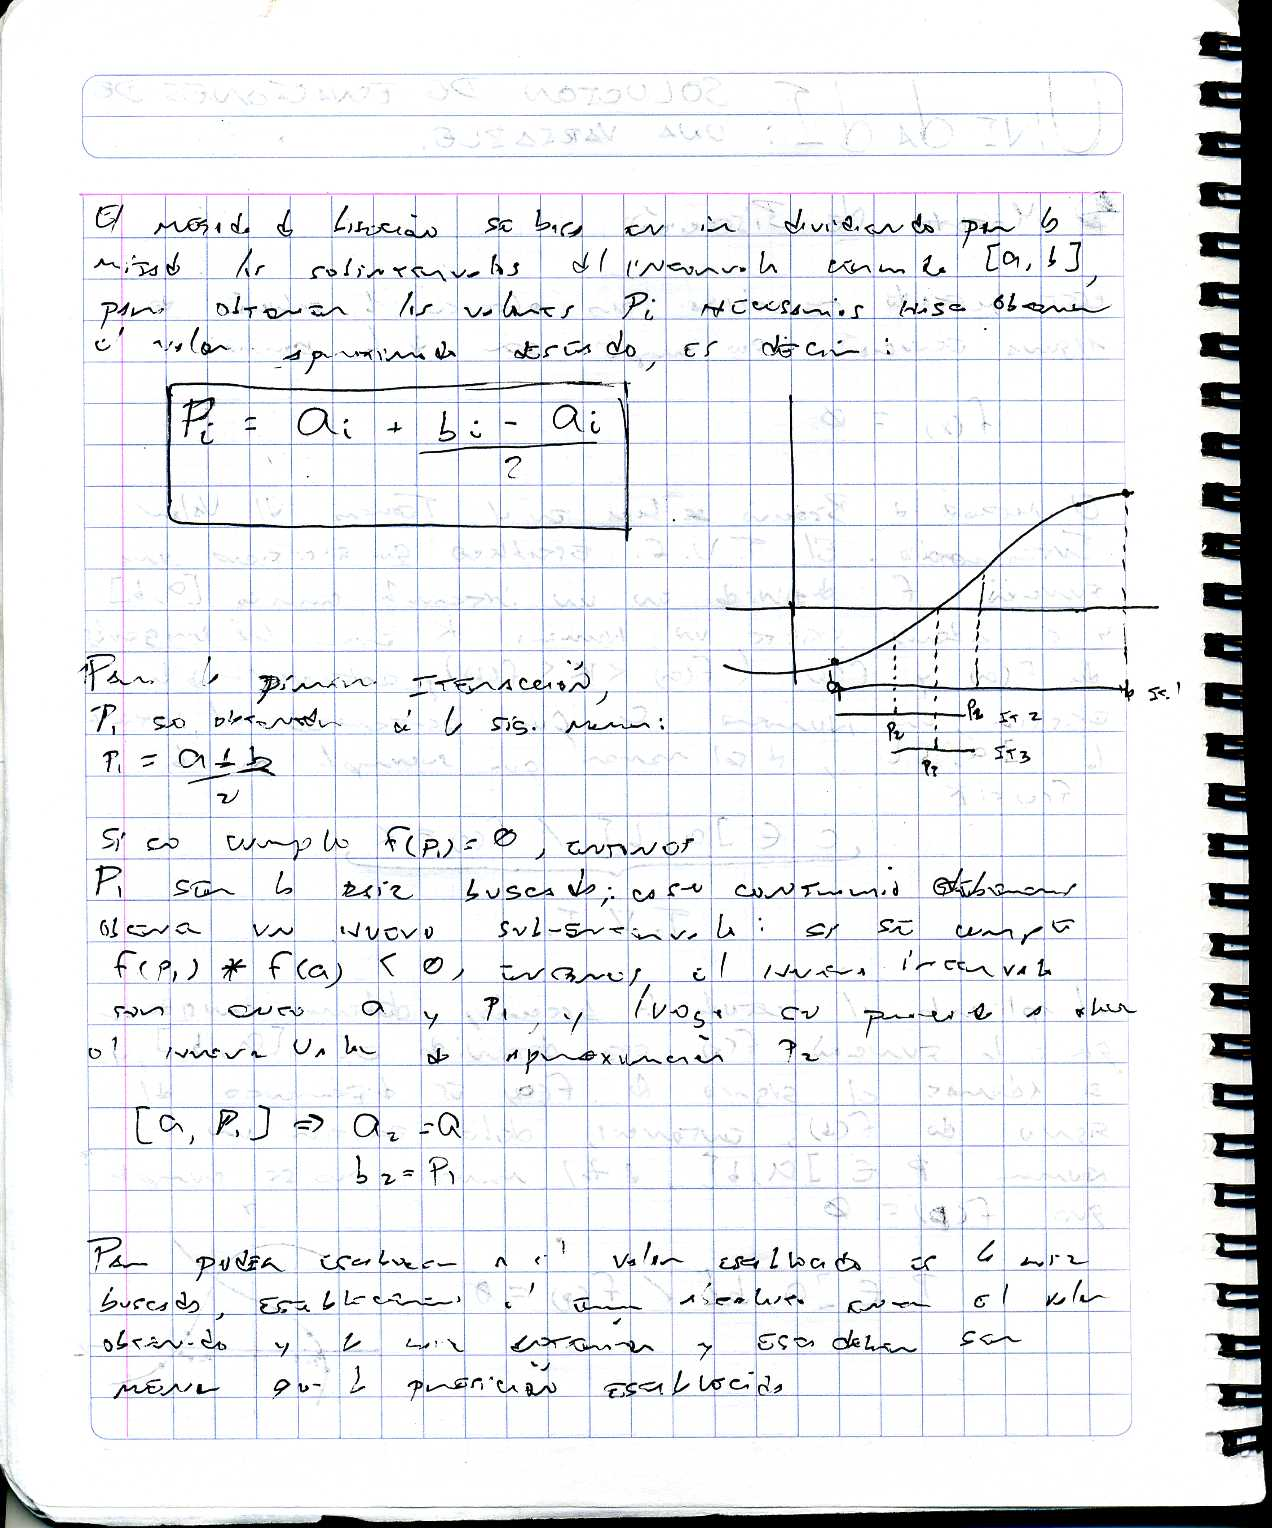 El método d bisección se basa en ir dividiendo por la
mitad los subintervalos del intervalo cerrado [a, b],
para obtener los valores Pi necesarios hasta obtener
el valor aproximado deseado, es decir:
Pi = ai + bi - ai
2
Para la primera ITERACCIÓN,
P1 se obtendrá d la sig. manera:
P1 = a + b
2
a
b
IT.1
P2
P1
IT2
P3
IT3
Si se cumple f(P1) = 0, entonces
P1 será la raíz buscada; caso contrario debemos
obtener un nuevo sub-intervalo: si se cumple
f(P1) * f(a) < 0, entonces el nuevo intervalo
será entre a y P1, y luego se procede a obtener
el nuevo valor de aproximación P2
[a, P1] => a2 = a
b2 = P1
Para poder establecer si el valor establecido es la raíz
buscada, establecemos el error absoluto entre el valor
obtenido y la raíz y este deber ser
menor que la precisión establecida